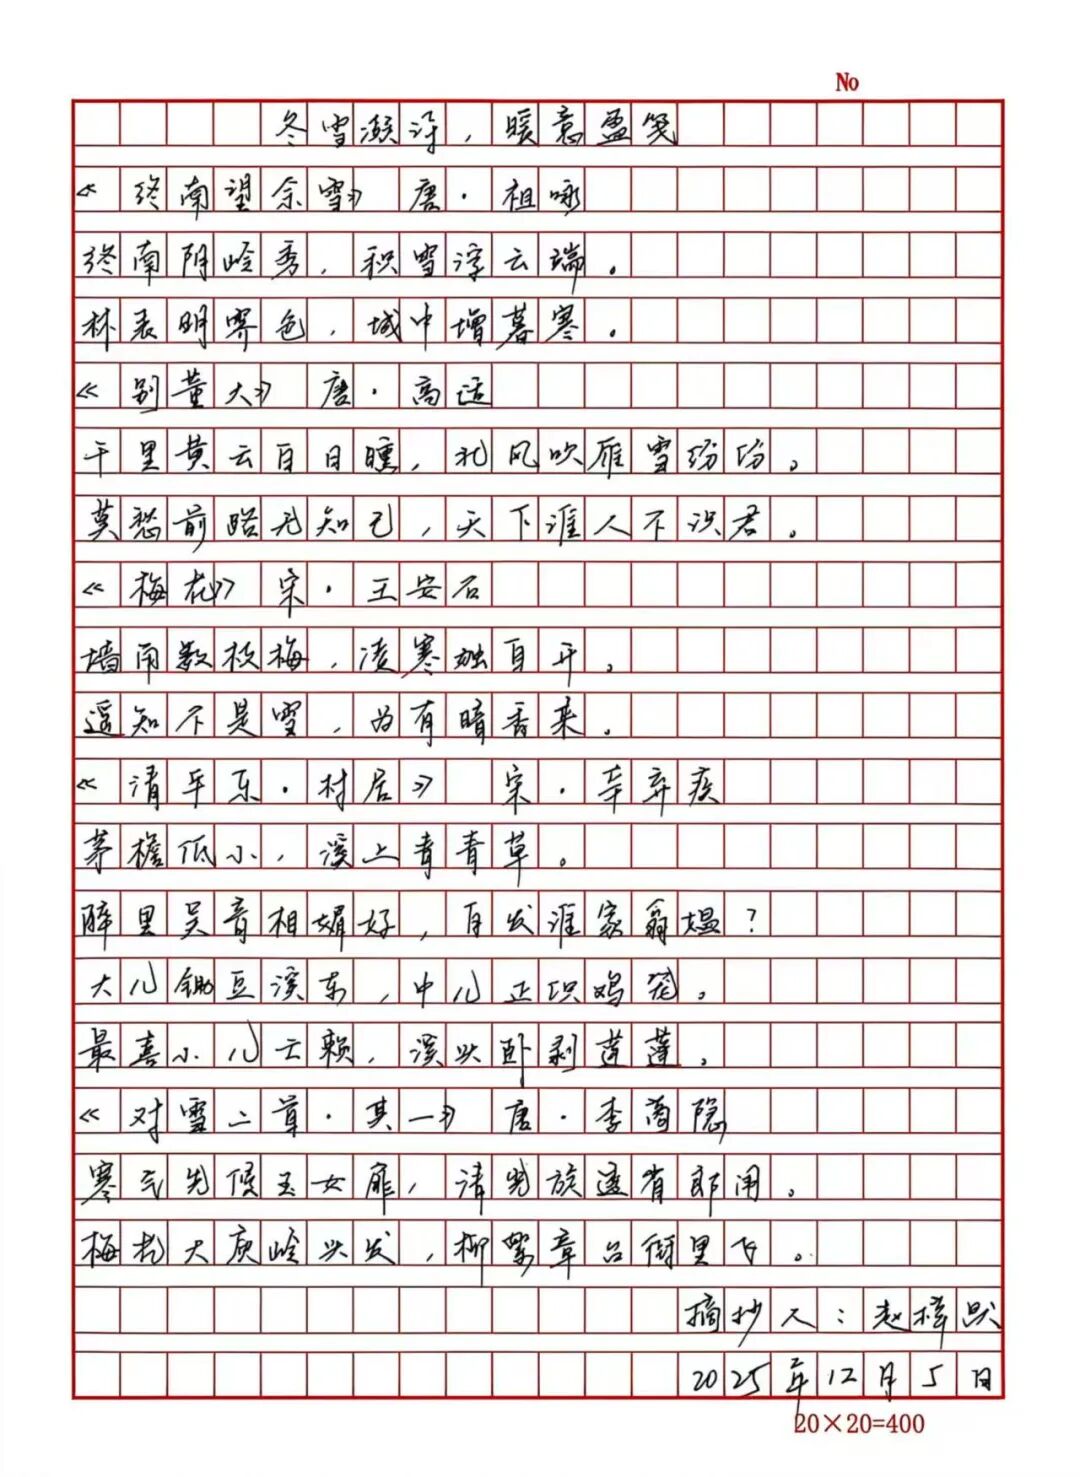 No
冬雪频浮，暖意盈笺
《终南望余雪》唐·祖咏
终南阴岭秀，积雪浮云端。
林表明霁色，城中增暮寒。
《别董大》唐·高适
千里黄云白日曛，北风吹雁雪纷纷。
莫愁前路无知己，天下谁人不识君。
《梅花》宋·王安石
墙角数枝梅，凌寒独自开。
遥知不是雪，为有暗香来。
《清平乐·村居》宋·辛弃疾
茅檐低小，溪上青青草。
醉里吴音相媚好，白发谁家翁媪？
大儿锄豆溪东，中儿正织鸡笼。
最喜小儿亡赖，溪头卧剥莲蓬。
《对雪二首·其一》唐·李商隐
寒气先侵玉女扉，清光旋透省郎闱。
梅花大庾岭头发，柳絮章台街里飞。
摘抄人：赵梓
2025年12月5日
20×20=400